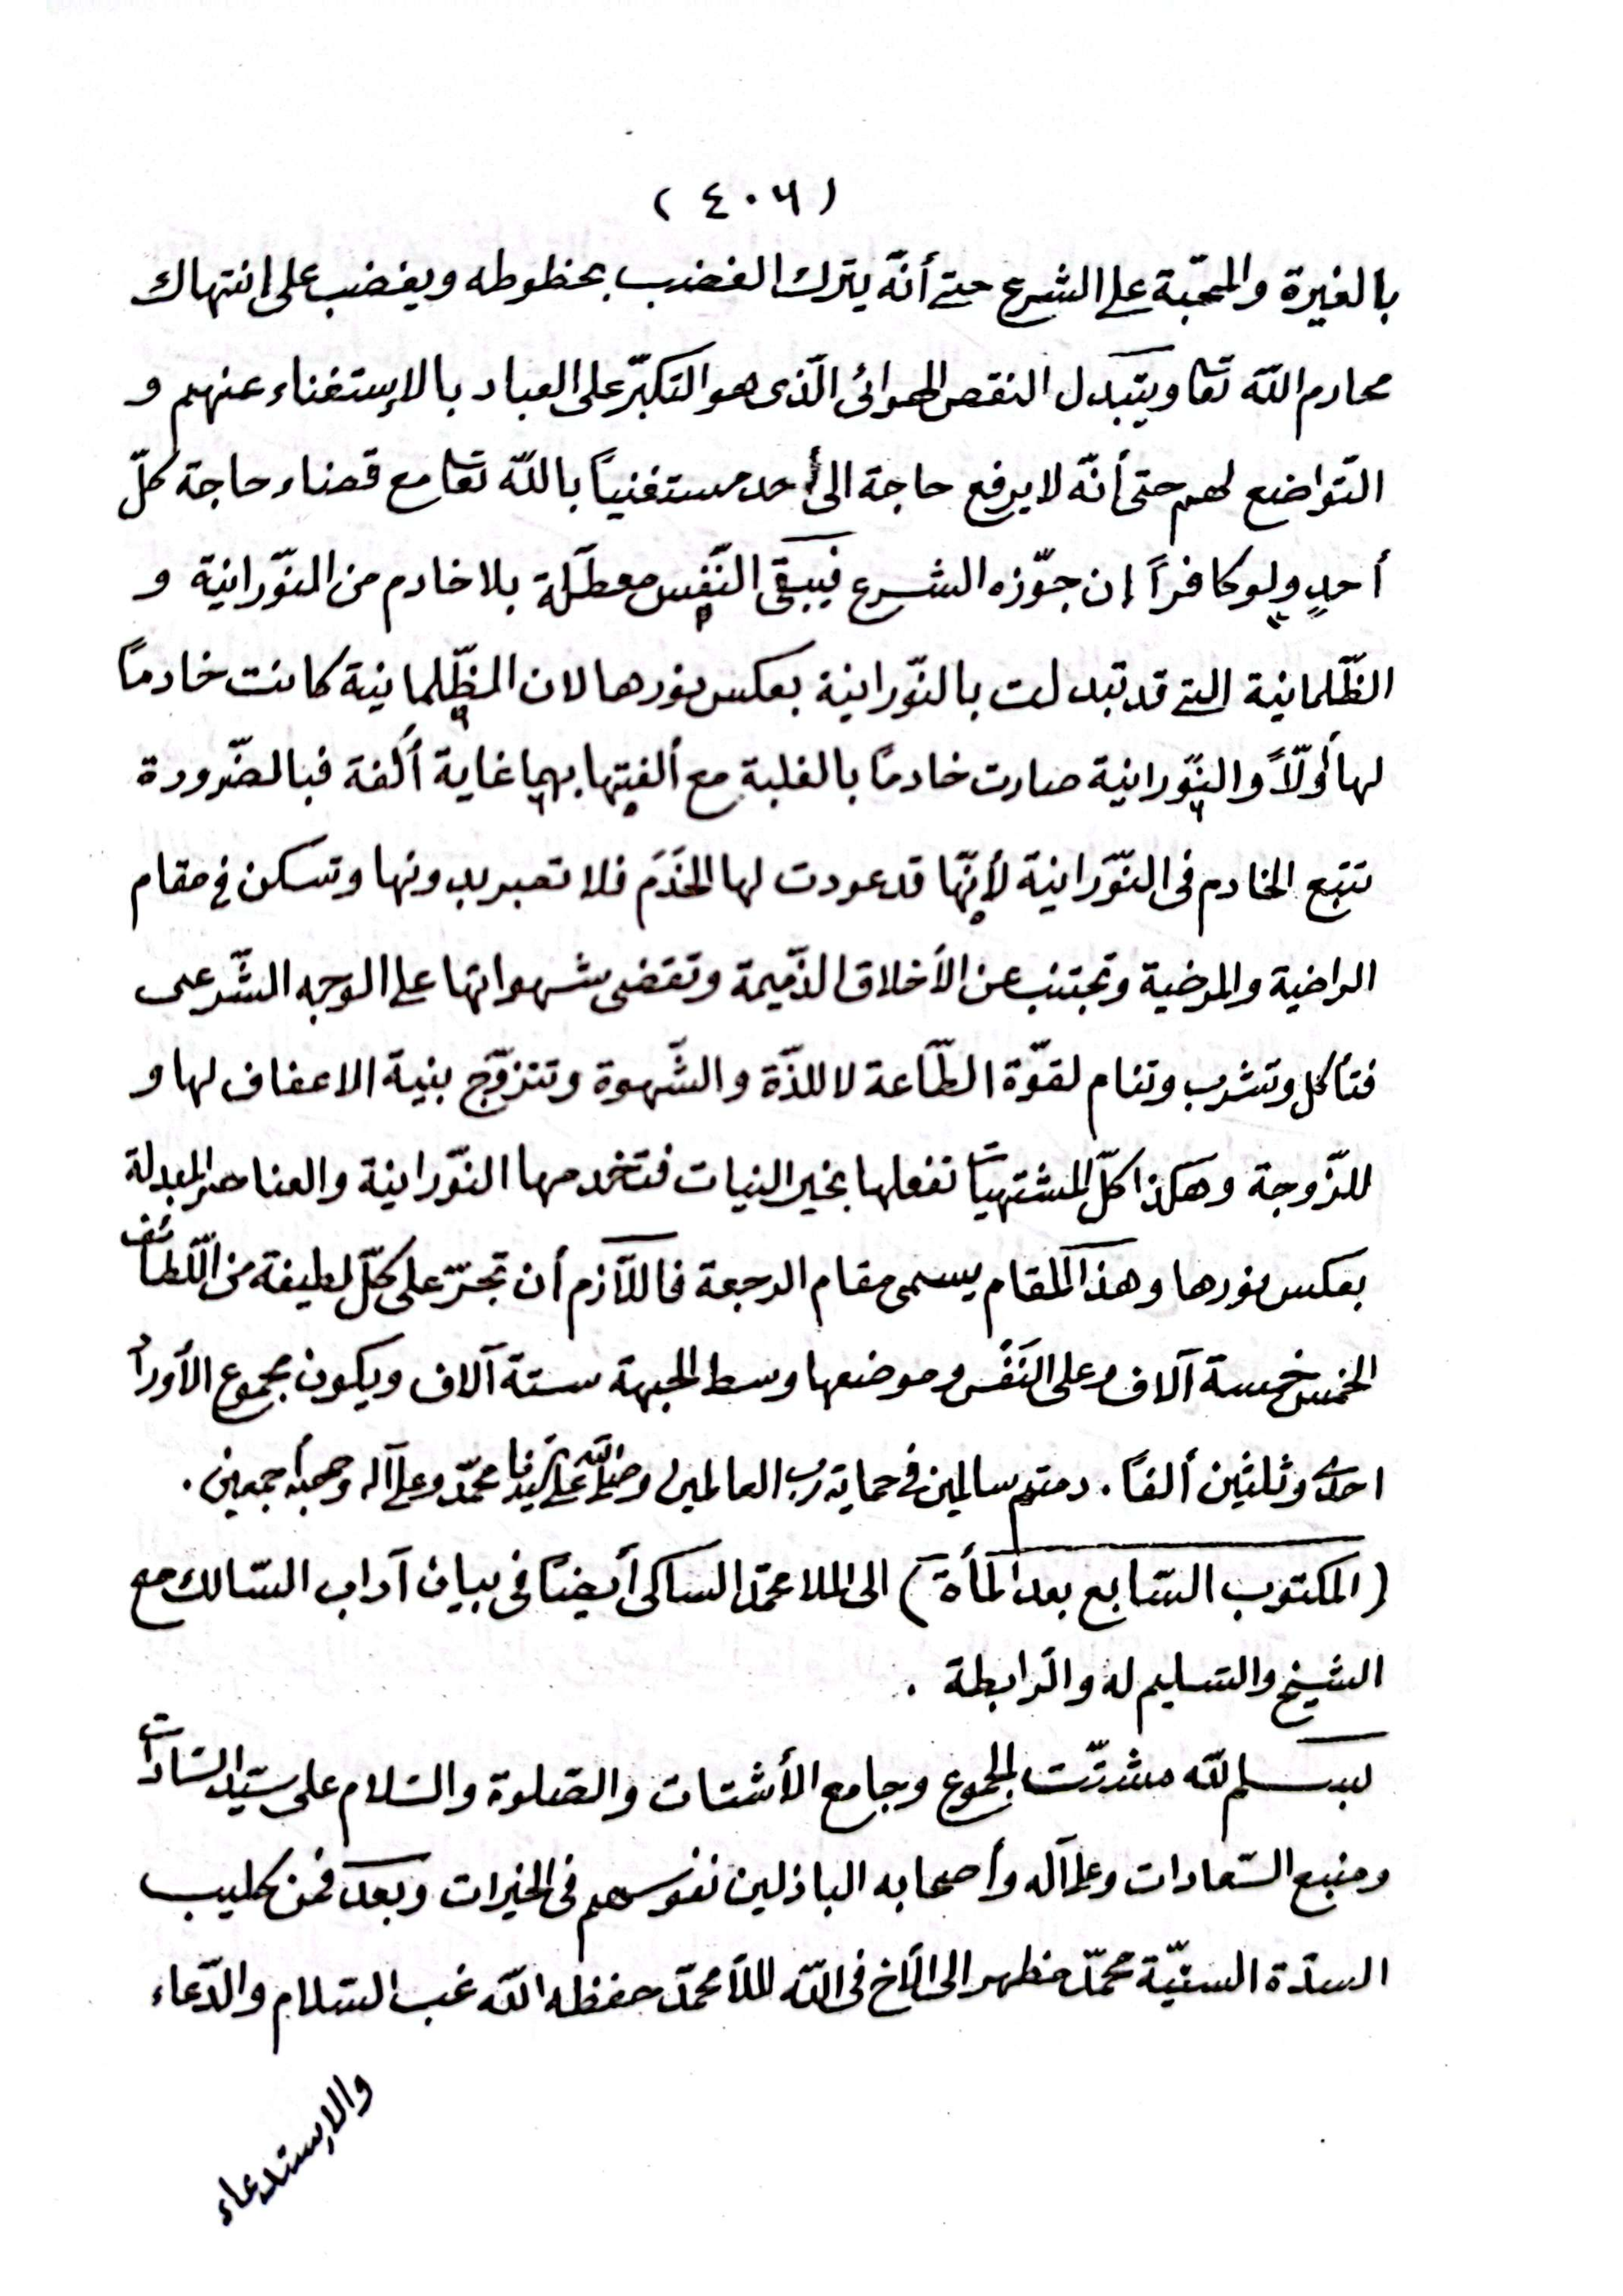 (٤٠٦)
بالغيرة والمحبّة على الشرع حتى أنّه يترك الغضب بحظوظه ويغضب على انتهاك
محارم اللّه تعا ويتبدل النقص الهوائى الّذى هو التكبّر على العباد بالإستغناء عنهم و
التّواضع لهم حتى أنّه لا يرفع حاجة الى أحد مستغنياً باللّه تعا مع قضاء حاجة كلّ
أحدٍ ولو كافراً إن جوّزه الشرع فيبقى النّفس معطلة بلا خادم من النّورانية و
الظّلمانية التى قد تبدلت بالنّورانية بعكس نورها لان الظّلمانية كانت خادماً
لها أوّلاً والنّورانية صارت خادماً بالغلبة مع ألفتها بهما غاية ألفة فبالضّرورة
تتبع الخادم فى النّورانية لأنّها قد عودت لها الخدَم فلا تصبر بدونها وتسكن فى مقام
الراضية والمرضية وتجتنب عن الأخلاق الذّميمة وتقضى شهواتها على الوجه الشّرعى
فتأكل وتشرب وتنام لقوّة الطّاعة لا للذّة والشّهوة وتتزوّج بنية الاعفاف لها و
للزّوجة وهكذا كلّ المشتهيات تفعلها بخير النيات فتخدمها النّورانية والعناصر المبدلة
بعكس نورها وهذا المقام يسمى مقام الرجعة فاللّازم أن تجرّ على كلّ لطيفة من اللّطائف
الخمس خمسة آلاف وعلى النّفس وموضعها وسط الجبهة ستة آلاف ويكون مجموع الأوراد
احدى وثلثين ألفاً . دمتم سالمين فى حماية رب العالمين وصلى اللّه على سيدنا محمّد وعلى آله وصحبه أجمعين .
(المكتوب السّابع بعد المأة) الى الملا محمّد الساكى أيضاً فى بيان آداب السّالك مع
الشيخ والتسليم له والرّابطة .
بسم اللّه مشتّت الجموع وجامع الأشتات والصّلوة والسّلام على سيّد السّادات
ومنبع السّعادات وعلى آله وأصحابه الباذلين نفوسهم فى الخيرات وبعد فمن كليب
السدّة السنيّة محمّد مظهر الى الأخ فى اللّه الملّا محمّد حفظه اللّه غب السّلام والدّعاء
والإستدعاء